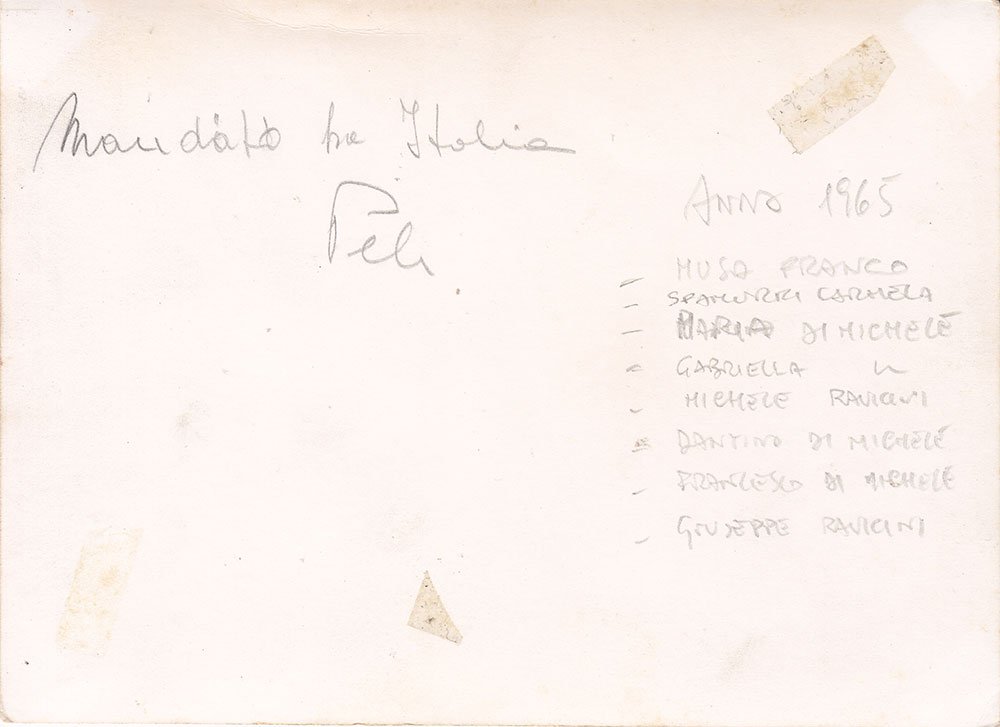 Mandato Italia
ANNO 1965
- MUSA FRANCO
- CARMELA
- MARIA DI MICHELE
- GABRIELLA "
- MICHELE RAVICINI
- DANTINO DI MICHELE
- FRANCESCO DI MICHELE
- GIUSEPPE RAVICINI